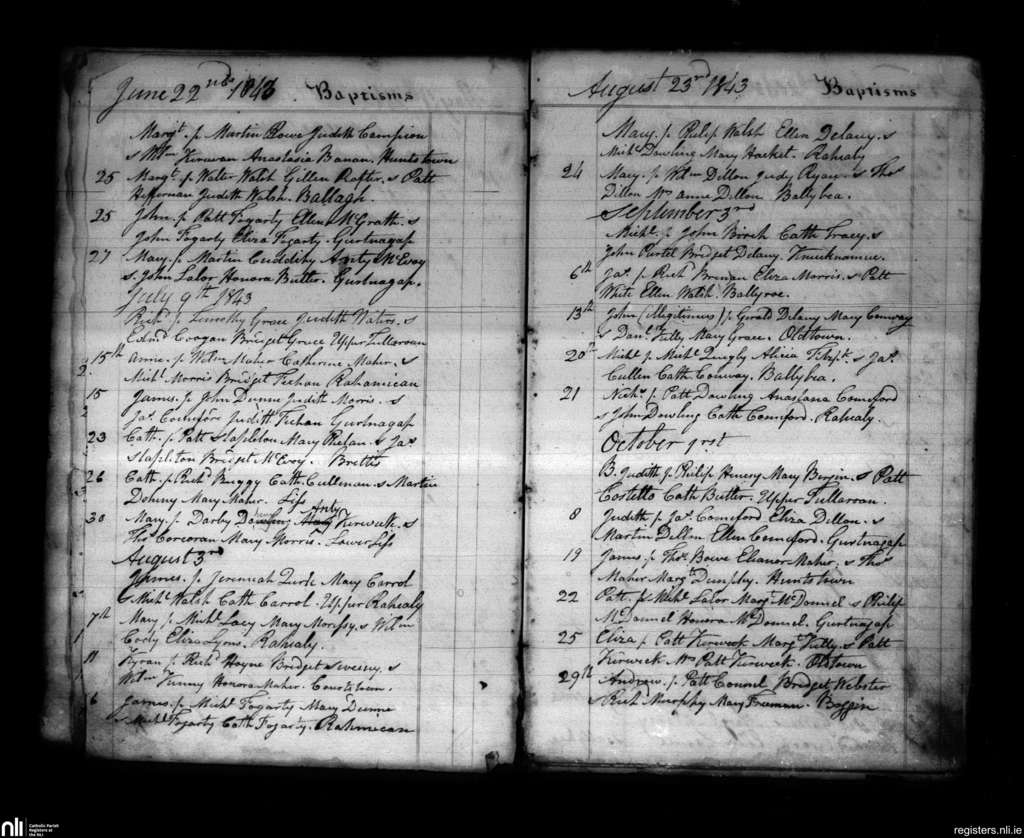 June 22nd 1843 Baptisms
Margt. p. Martin Rowe Judith Campion
s Wllm Kirwan Anastasia Banan. Huntstown
25 Margt. p. Walter Walsh Gillen Rafter. s Patt
Heffernan Judith Walsh. Ballagh.
25 John. p. Patt Fogarty Ellen McGrath. s
John Fogarty Eliza Fogarty. Gurtnagap
27 Mary. p. Martin Cuddihy Anty McEvoy
s. John Lalor Honora Butler. Gurtnagap.
July 9th 1843
Richd. p. Timothy Grace Judith Waters. s
Edmd Coogan Bridget Grace Upper Tullaroan
15th Anne. p. Wllm Maher Catherine Maher. s
Michl Morris Bridget Tehan Rahamecan
15 James. p. John Dunne Judith Morris. s
Jas. Comefore Judith Tehan Gurtnagap
23 Cath. p. Patt Stapleton Mary Phelan. s Jas
Stapleton Bridget McEvoy. Brettis
26 Cath. p. Richd Buggy Cath. Cullenan. s Martin
Dohiny Mary Maher. Liss
30 Mary. p. Darby Dowling Anty Kerwick. s
Thos Corcoran Mary Morris. Lower Liss
August 3rd
James. p. Jeremiah Quirk Mary Carrol
s Michl Walsh Cath Carrol. Upper Rahealy
7th Mary p. Michl Lacy Mary s Wllm
Cody Eliza Lyons. Rahealy.
11 Kyran p. Richd Hoyne Bridget Sweeny. s
Wllm Kenny Honora Maher. Courtstown.
James. p. Michl Fogarty Mary Dunne
s Michl Fogarty Cath Fogarty. Rahmecan
August 23rd 1843 Baptisms
Mary. p. Philip Walsh Ellen Delany. s
Michl Dowling Mary Hacket. Rahealy
24 Mary. p. Wllm Dillon Judy Ryan. s Thos
Dillon Mrs Anne Dillon Ballybea.
September 3rd
Michl. p. John Birch Cath Tracy. s
John Purtel Bridget Delany. Knucknamuc.
6th Jas. p. Richd Brenan Eliza Morris. s Patt
White Ellen Walsh. Ballyroe.
13th John (Illegitimus) p. Gerald Delany Mary Conway
s Danl Kelly Mary Grace. Oldtown.
20th Michl p. Michl Quigly Alicia s Jas.
Cullen Cath Conway. Ballybea.
21 Nichs. p. Patt Dowling Anastana Comeford
s John Dowling Cath Comeford. Rahealy.
October 1rst
B. Judith p. Philip Henery Mary Bergin. s Patt
Costello Cath Butler. Upper Tullaroan.
8 Judith p. Jas. Comeford Eliza Dillon. s
Martin Dillon Ellen Comeford. Gurtnagap
19 James p. Thos. Bowe Eleanor Maher. s Thos
Maher Margt Dunphy. Huntstown
22 Patt. p. Michl Lalor Margt McDonnel s Philip
McDonnel Honora McDonnel. Gurtnagap
25 Eliza p. Patt Kerwick Margt Kelly. s Patt
Kerwick Mrs Patt Kerwick. Oldtown
29th Andrew. p. Patt Connel Bridget Webster
s Rich Murphy Mary Freeman. Boggin
nli
Catholic Parish
Registers at
the NLI
registers.nli.ie